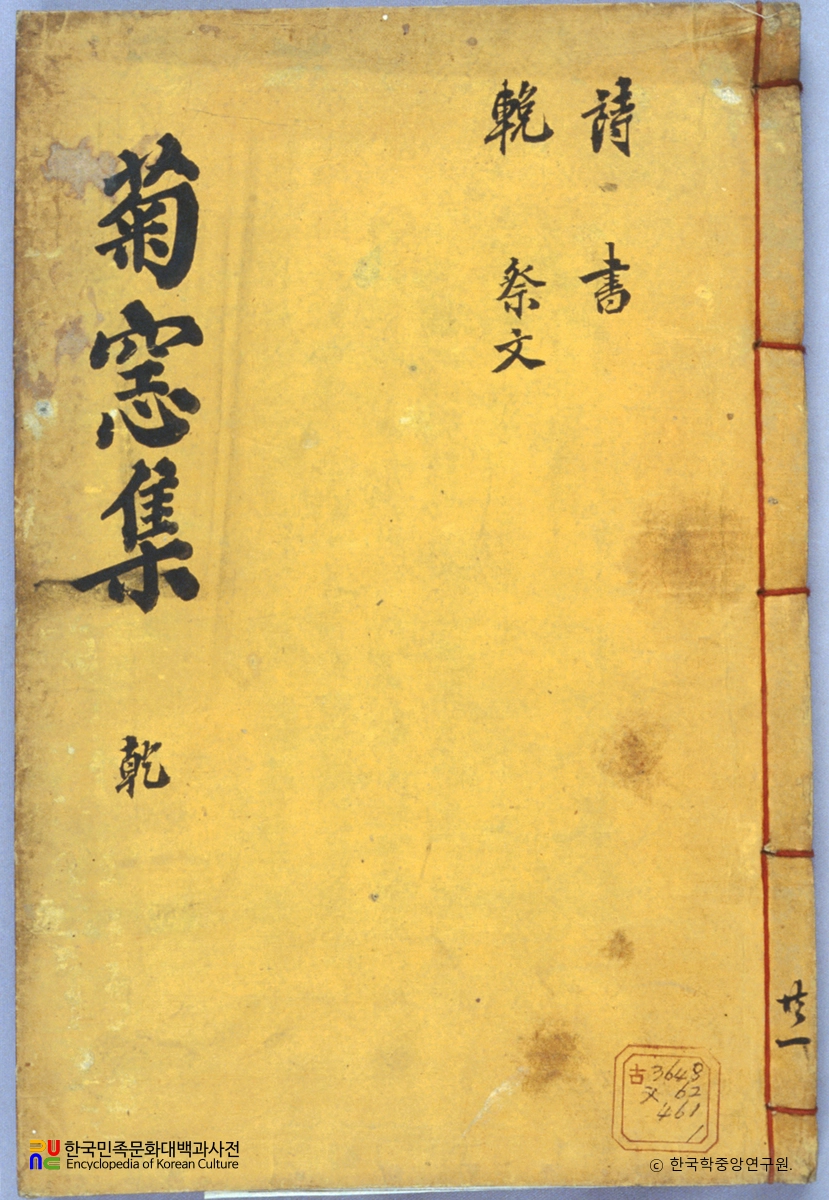 詩 書
輓 祭文
菊窓集 乾
共一
古3648
文 62
461
1
한국민족문화대백과사전
Encyclopedia of Korean Culture
© 한국학중앙연구원.